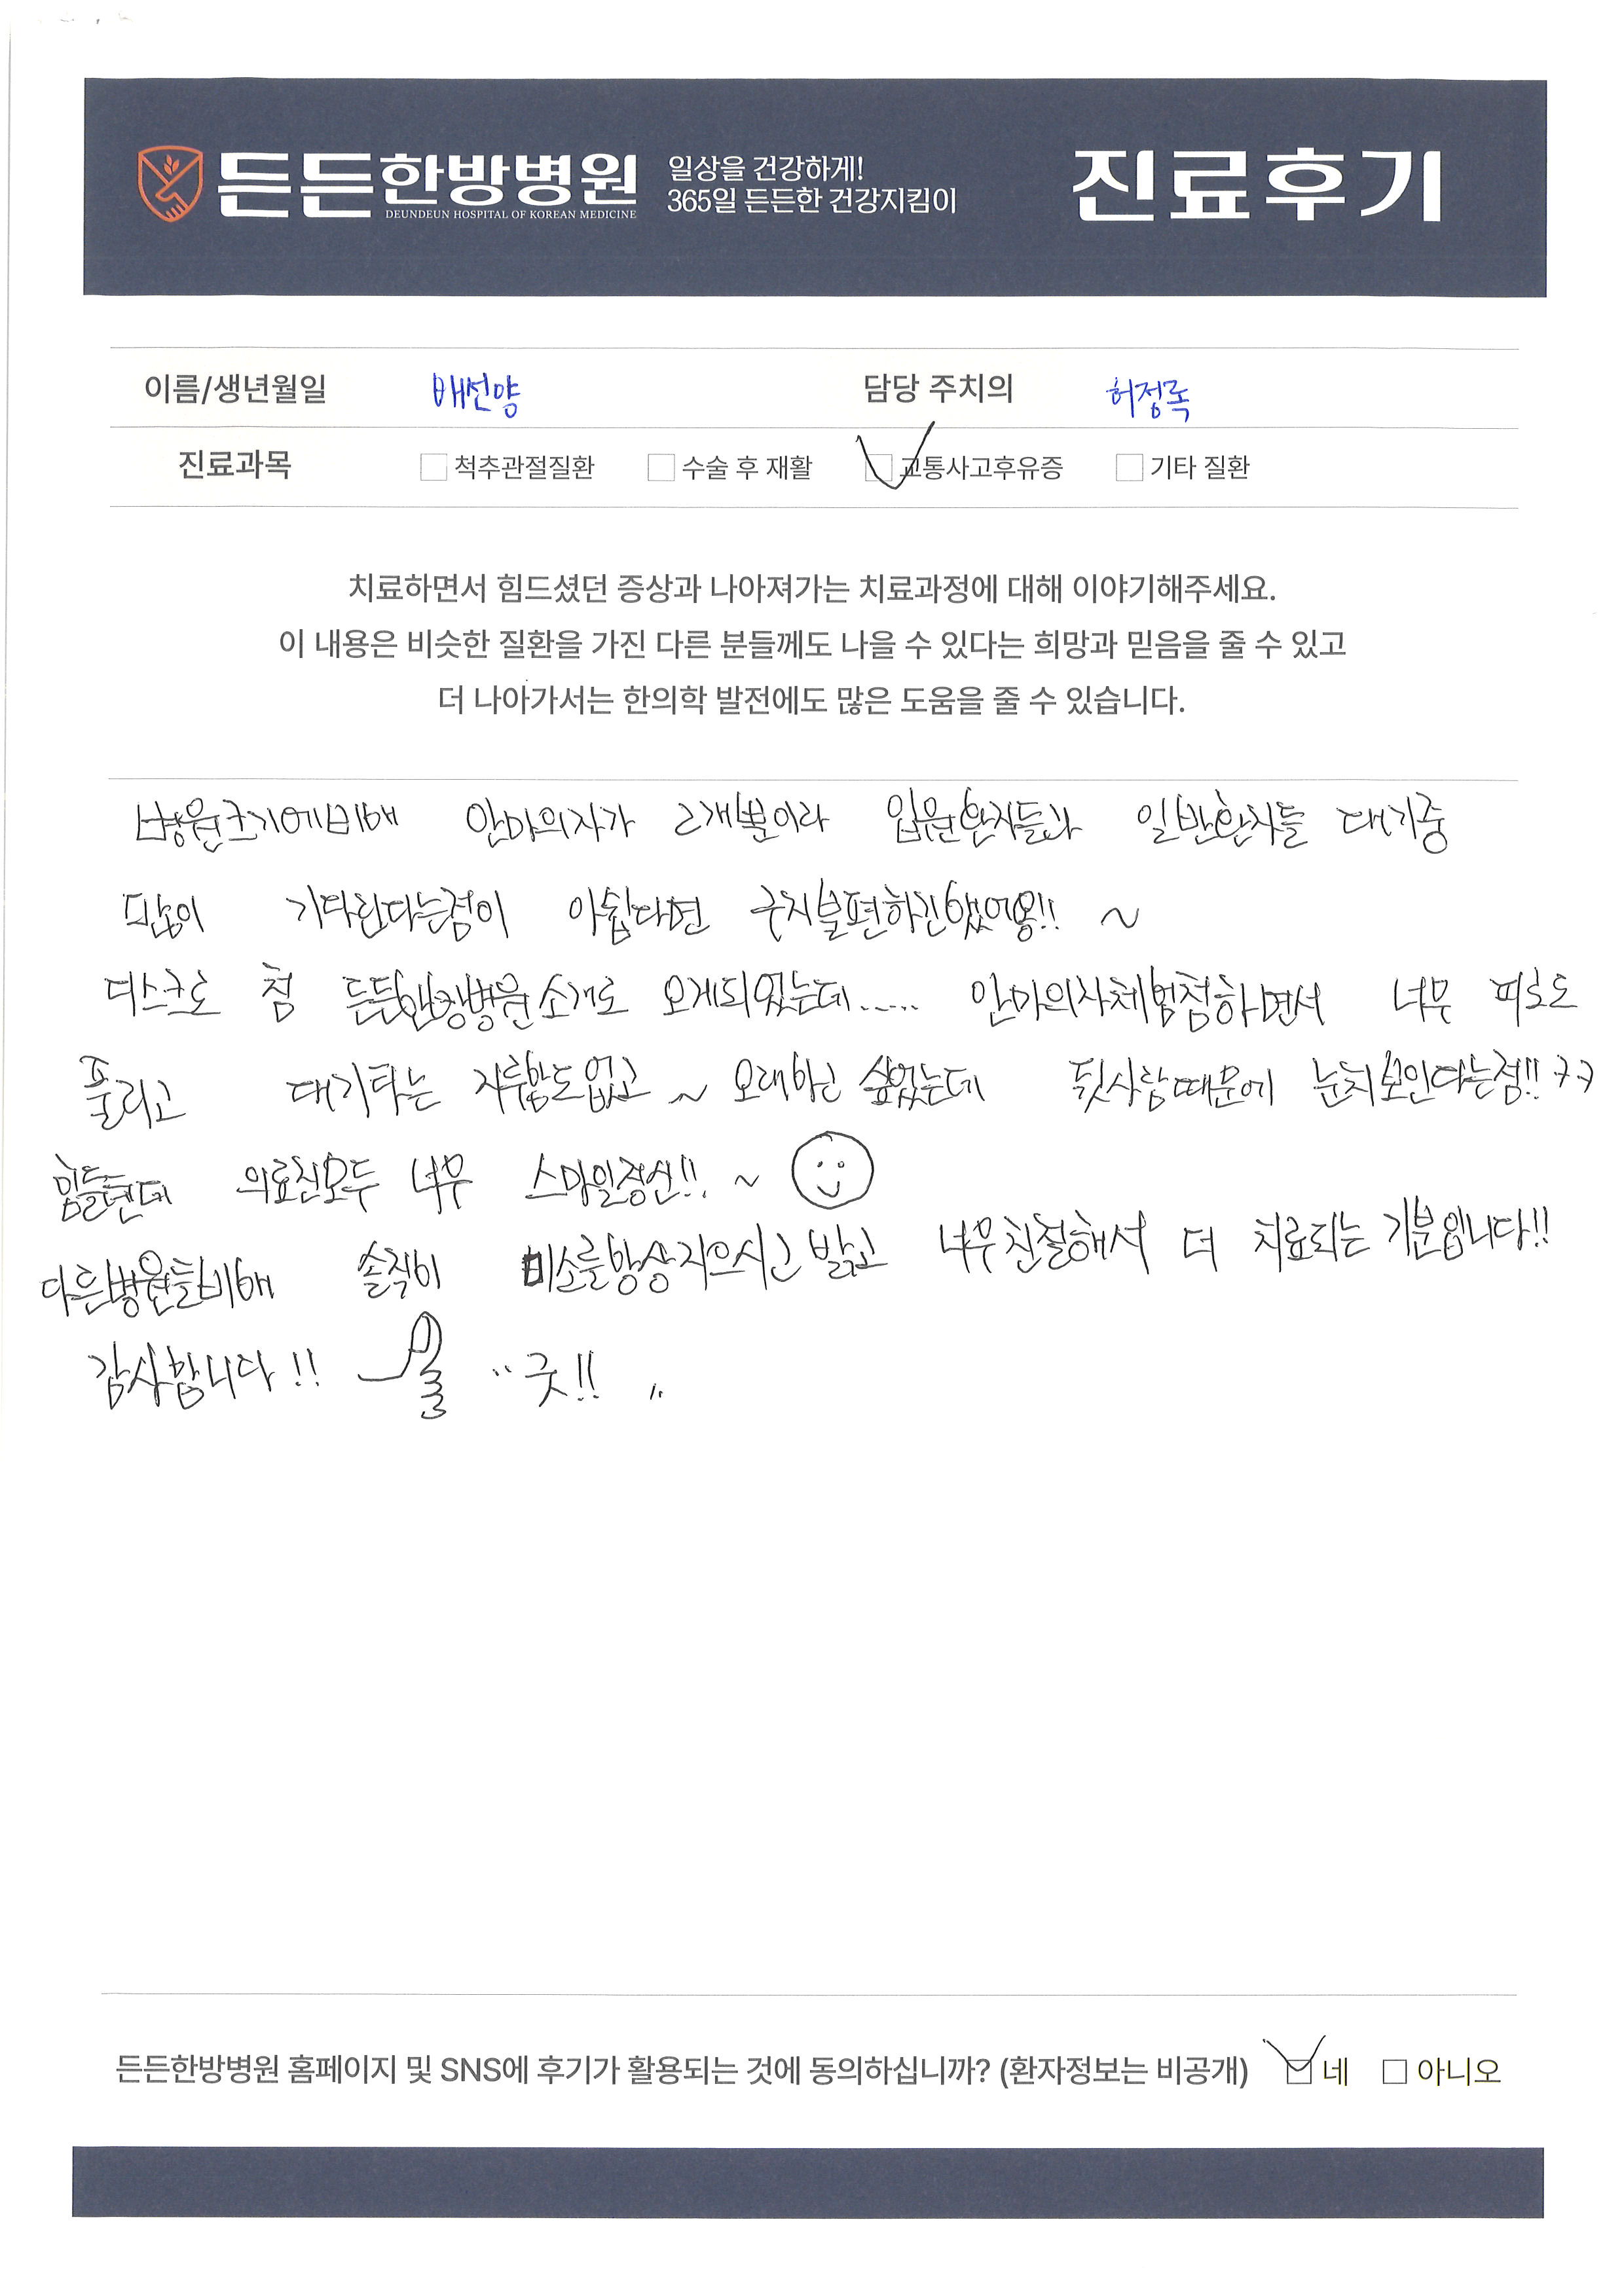 든든한방병원
DEUNDEUN HOSPITAL OF KOREAN MEDICINE
일상을 건강하게!
365일 든든한 건강지킴이
진료후기
이름/생년월일 배선양 담당 주치의 허정록
진료과목 척추관절질환 수술 후 재활 교통사고후유증 기타 질환
치료하면서 힘드셨던 증상과 나아져가는 치료과정에 대해 이야기해주세요.
이 내용은 비슷한 질환을 가진 다른 분들께도 나을 수 있다는 희망과 믿음을 줄 수 있고
더 나아가서는 한의학 발전에도 많은 도움을 줄 수 있습니다.
병원크기에비해 안마의자가 2개뿐이라 입원환자들과 일반환자들 대기중
많이 기다린다는점이 아쉽다면 굳지불편하긴했어용!! ~
디스크로 첨 든든한방병원소개로 오게되었는데..... 안마의자체험첨하면서 너무 피로도
풀리고 대기타는 지루함도없고 ~ 오래하곤 싶었는데 뒷사람때문에 눈치보인다는점!! ㅋㅋ
힘들텐데 의료진모두 너무 스마일정신!! ~
다른병원들비해 솔직히 미소를항상지으시고 밝고 너무친절해서 더 치료되는 기분입니다!!
감사합니다!! "굿!! "
든든한방병원 홈페이지 및 SNS에 후기가 활용되는 것에 동의하십니까? (환자정보는 비공개) 네 아니오